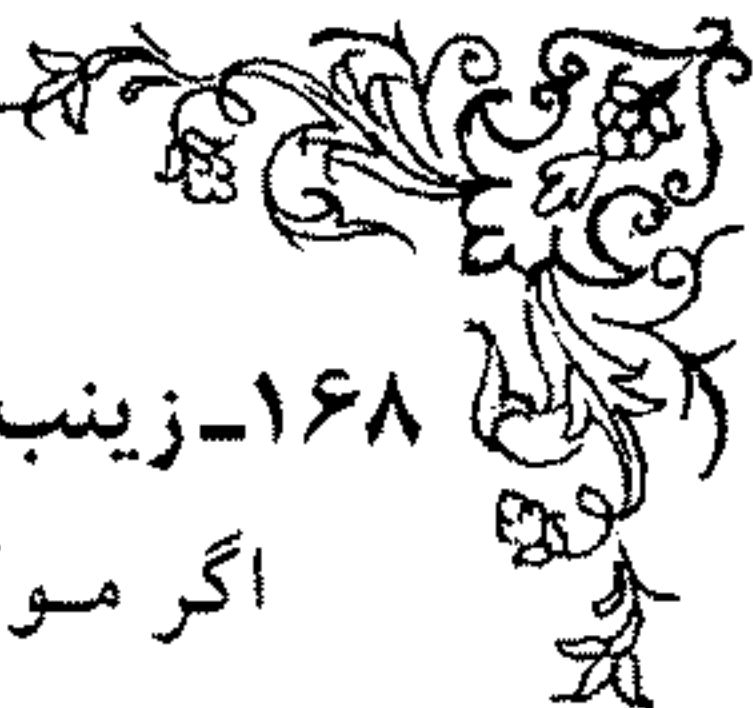 ۱۶۸ـ زینب
اگر